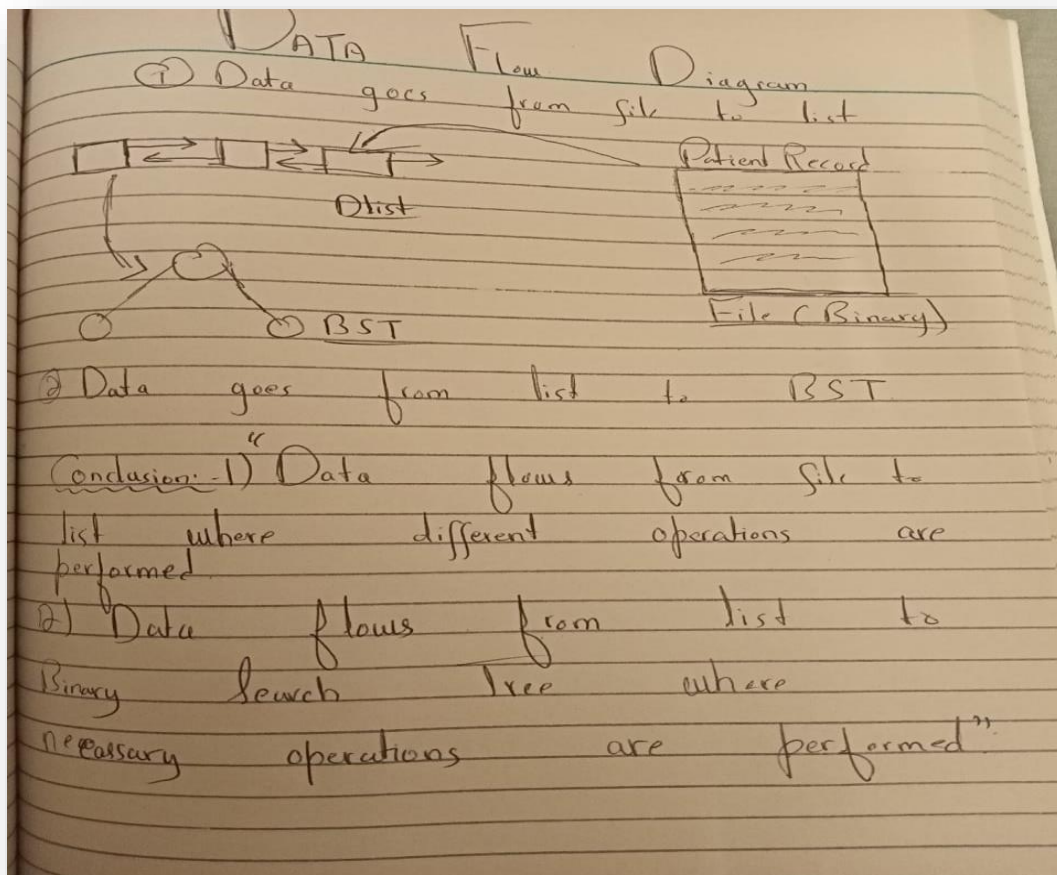 DATA Flow Diagram
① Data goes from file to list
Patient Record
Dlist
File (Binary)
BST
② Data goes from list to BST
Conclusion:-1) "Data flows from file to
list where different operations are
performed
2) Data flows from list to
Binary Search Tree where
necessary operations are performed".